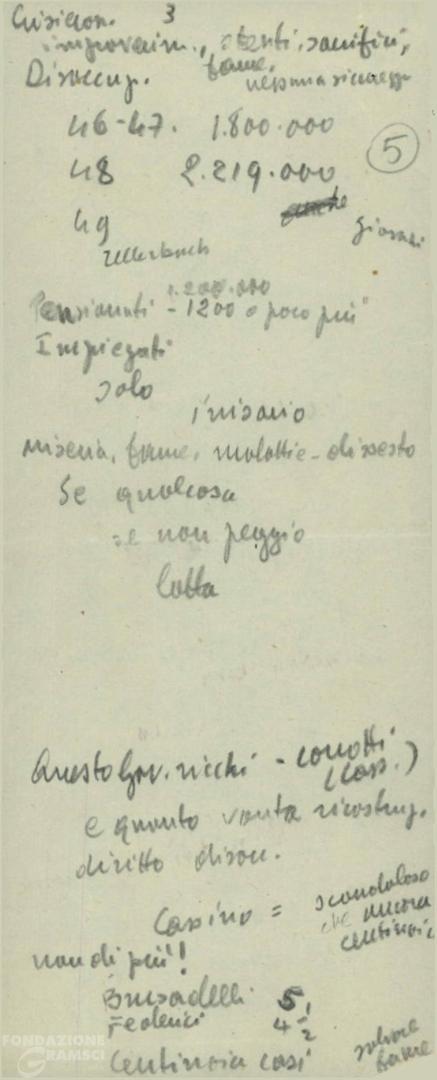 3
improverim., stenti, sacrifici,
Disoccup. fame,
nessuna sicurezza
46-47. 1.800.000
5
48 2.219.000
49 giovani
Zellerbach
1.200.000
Pensionati - 1200 o poco più
Impiegati
solo
irrisorio
miseria, fame, malattie - dissesto
Se qualcosa
se non peggio
lotta
Questo Gov. ricchi - corrotti
(Cass.)
e quanto vanta ricostruz.
diritto disocc.
Cassino = scandaloso
che ancora
centinaia
non di più!
Brusadelli 5
Federici 4 1/2
Centinaia casi
salvare
fame
FONDAZIONE
GRAMSCI